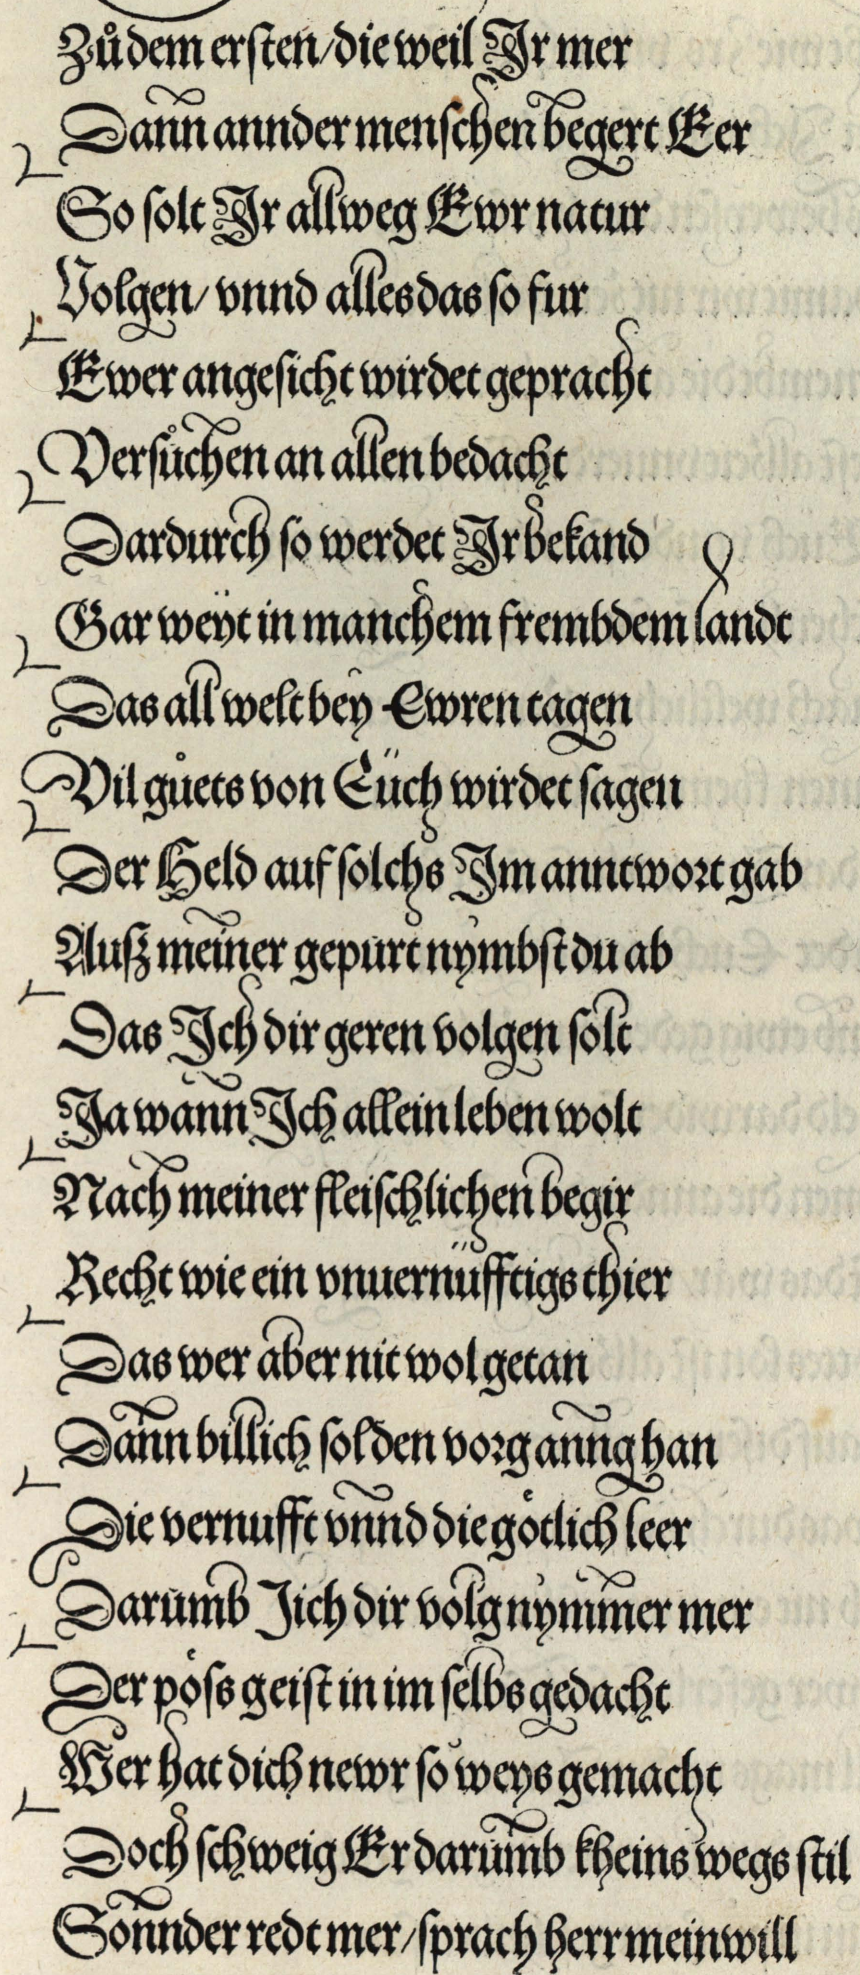 Zůdem ersten/die weil Ir mer
Dann annder menschen begert Eer
So solt Ir allweg Ewr natur
Volgen/ vnnd alles das so fur
Ewer angesicht wirdet gepracht
Versůchen an allen bedacht
Dardurch so werdet Ir bekand
Gar weyt in manchem frembdem landt
Das all welt bey Ewren tagen
Vil gůets von Eüch wirdet sagen
Der Held auf solchs Im anntwort gab
Auß meiner gepurt nymbst du ab
Das Ich dir geren volgen solt
Ja wann Ich allein leben wolt
Nach meiner fleischlichen begir
Recht wie ein vnuernüfftigs thier
Das wer aber nit wol getan
Dann billich sol den vorganng han
Die vernufft vnnd die götlich leer
Darumb Jich dir volg nymmer mer
Der pöss geist in im selbs gedacht
Wer hat dich newr so weys gemacht
Doch schweig Er darumb kheins wegs stil
Sonnder redt mer/sprach herr mein will